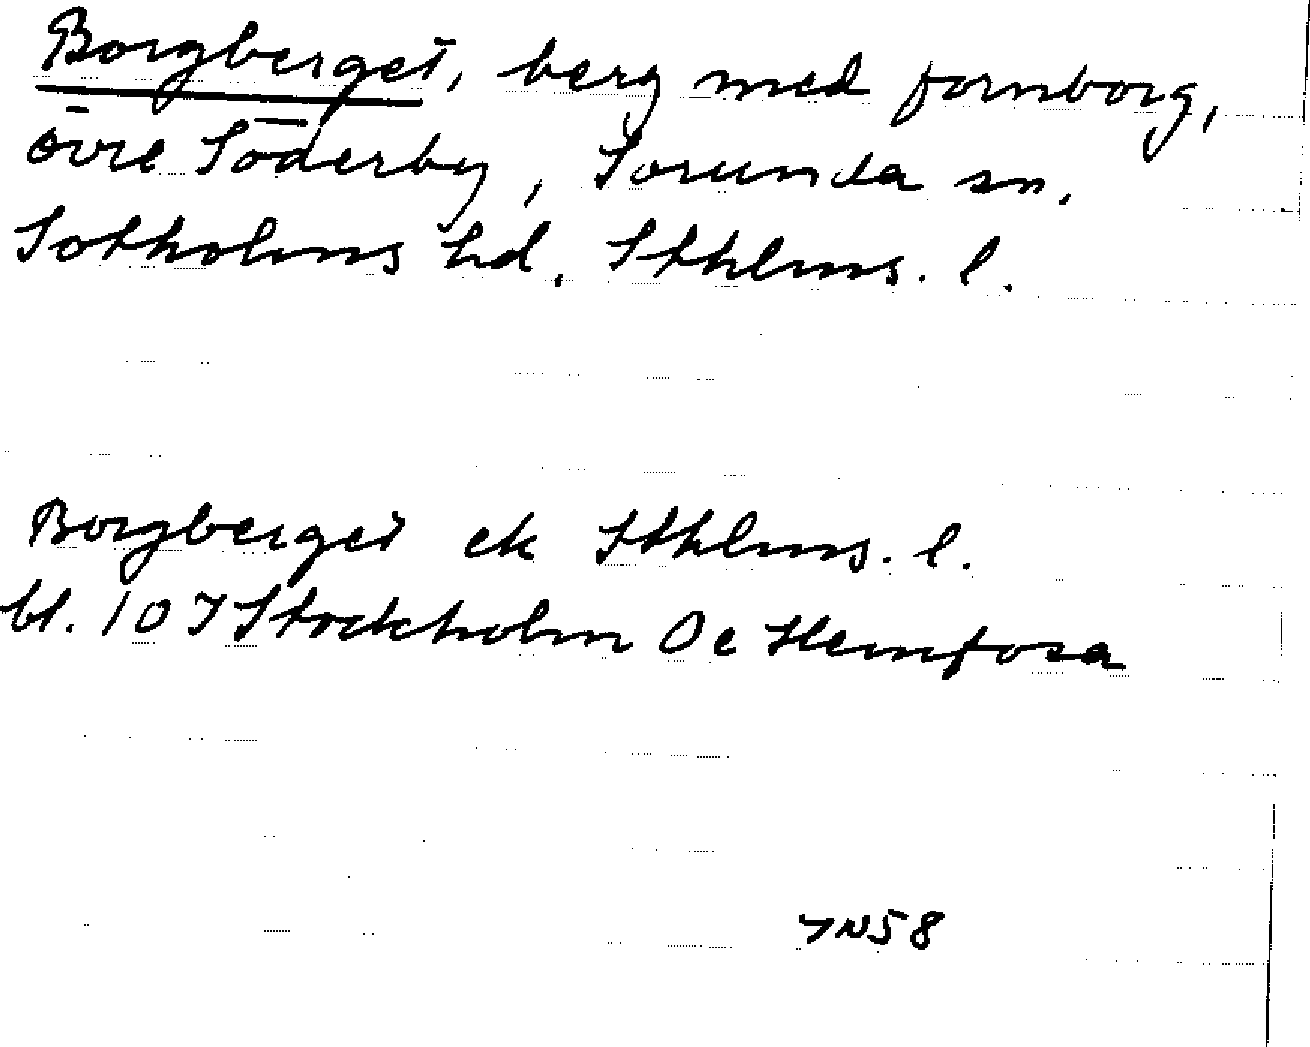 Borgberget, berg med fornborg,
övre Söderby, Sorunda sn.
Sotholms hd. Sthlms. l.
Borgberget ek Sthlms. l.
bl. 10 I Stockholm 0e Hemfosa